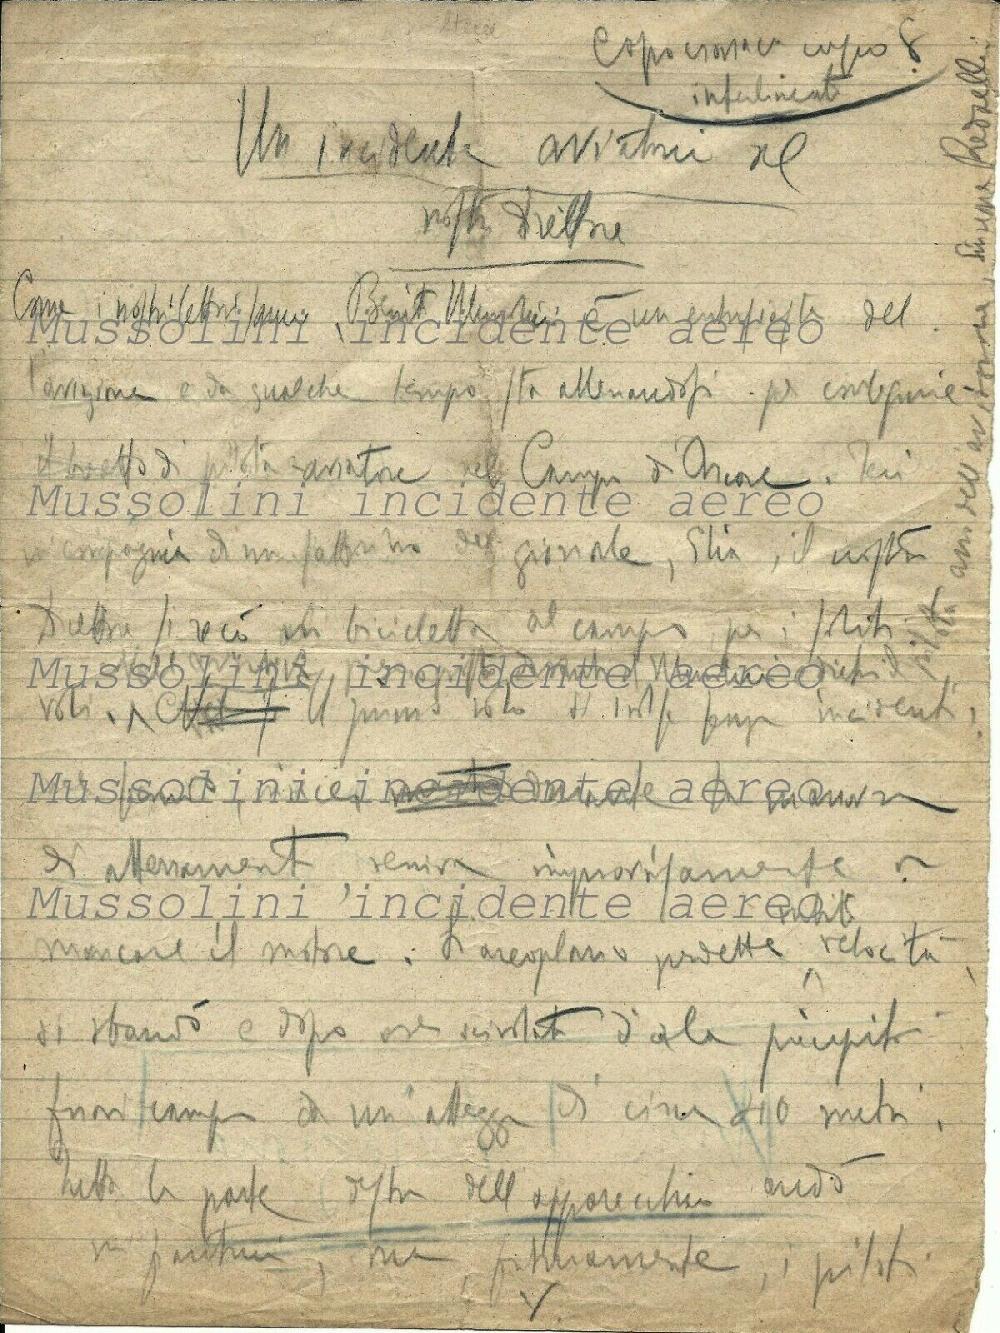 Capocronaca corpo 8
interlineato
Un incidente aviatorio al
nostro Direttore
Come i nostri lettori sanno, Benito Mussolini è un entusiasta del
Mussolini incidente aereo
l'aviazione e da qualche tempo sta allenandosi per conseguire
il brevetto di pilota aviatore nel Campo d'Arcore. Ieri
Mussolini incidente aereo
in compagnia di un fattorino del giornale, Elia, il nostro
Direttore si recò in bicicletta al campo per i soliti
Mussolini incidente aereo
voli. Il primo volo si svolse senza incidenti.
Mussolini incidente aereo
invece, durante la manovra
di atterramento veniva improvvisamente a
Mussolini incidente aereo
subito
mancare il motore. L'aeroplano perdette velocità,
si sbandò e dopo una scivolata d'ala precipitò
fuori campo da un'altezza di circa metri.
Tutta la parte destra dell'apparecchio andò
in frantumi, ma, fortunatamente, i piloti
pilota dell'aviazione, Redaelli